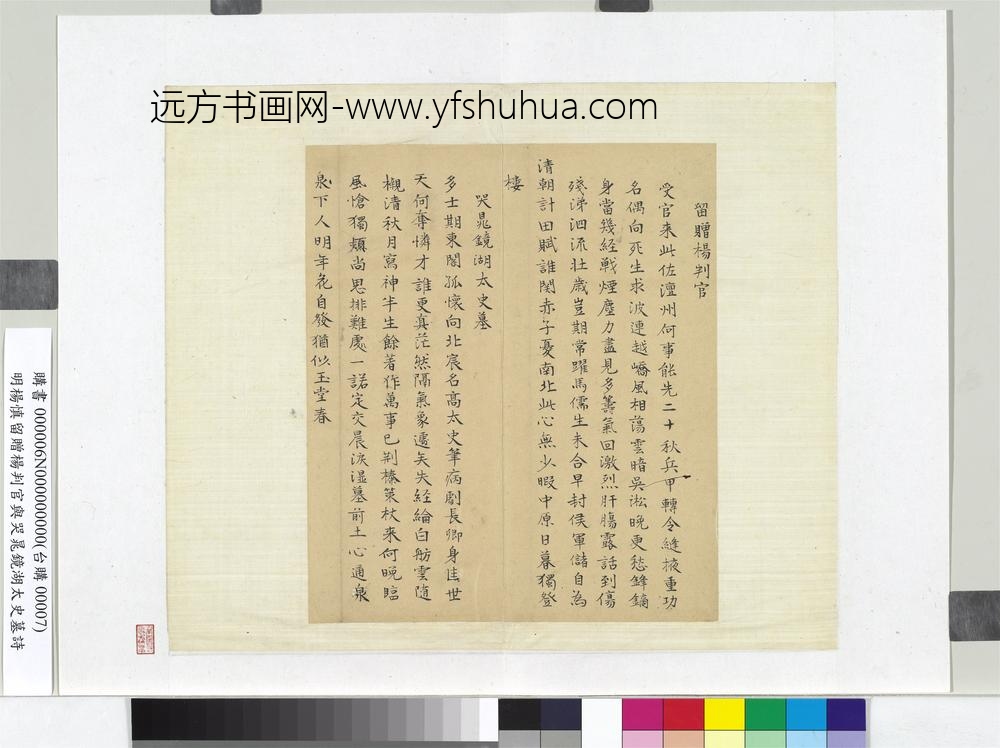 远方书画网-www.yfshuhua.com
留贈楊判官
受官来此佐澶州何事能先二十秋兵甲轉令縫掖重功
名偶向死生求波連越嶠風相蕩雲暗吳淞晚更愁鋒鏑
身當幾經戰煙塵力盡見多籌氣回激烈肝腸露話到傷
殘涕泗流壯歲豈期常躍馬儒生未合早封侯軍儲自為
清朝計田賦誰關赤子憂南北此心無少暇中原日暮獨登
樓
哭晁鏡湖太史墓
多士期東閣孤懷向北宸名高太史筆病劇長卿身佳世
天何奪憐才誰更真茫然隔氣象遽矣失經綸白舫雲隨
櫬清秋月寫神半生餘著作萬事已荆榛策杖来何晚臨
風愴獨頻尚思排難處一諾定交晨淚湿墓前土心通泉
泉下人明年花自發猶似玉堂春
購書 000006N000000000(台購 00007)
明楊慎留贈楊判官與哭晁鏡湖太史墓詩